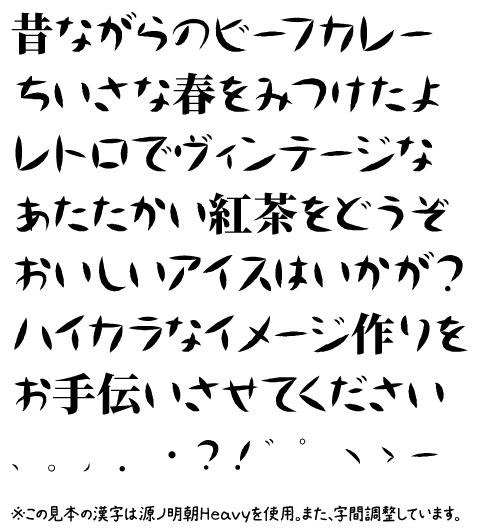 昔ながらのビーフカレー
ちいさな春をみつけたよ
レトロでヴィンテージな
あたたかい紅茶をどうぞ
おいしいアイスはいかが？
ハイカラなイメージ作りを
お手伝いさせてください
、。，．・？！゛゜ヽゝー
※この見本の漢字は源ノ明朝Heavyを使用。また、字間調整しています。